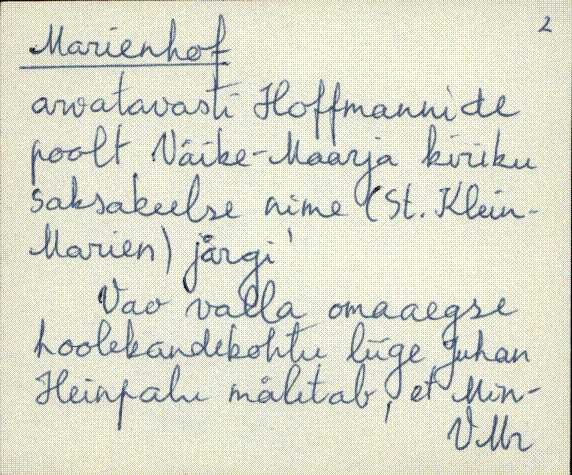 2
Marienhof
arvatavasti Hoffmannide
poolt Väike-Maarja kiriku
saksakeelse nime (St. Klein-
Marien) järgi
Vao valla omaaegse
hoolekandekohtu liige Juhan
Heinpalu mäletab, et Mõn-
VMr